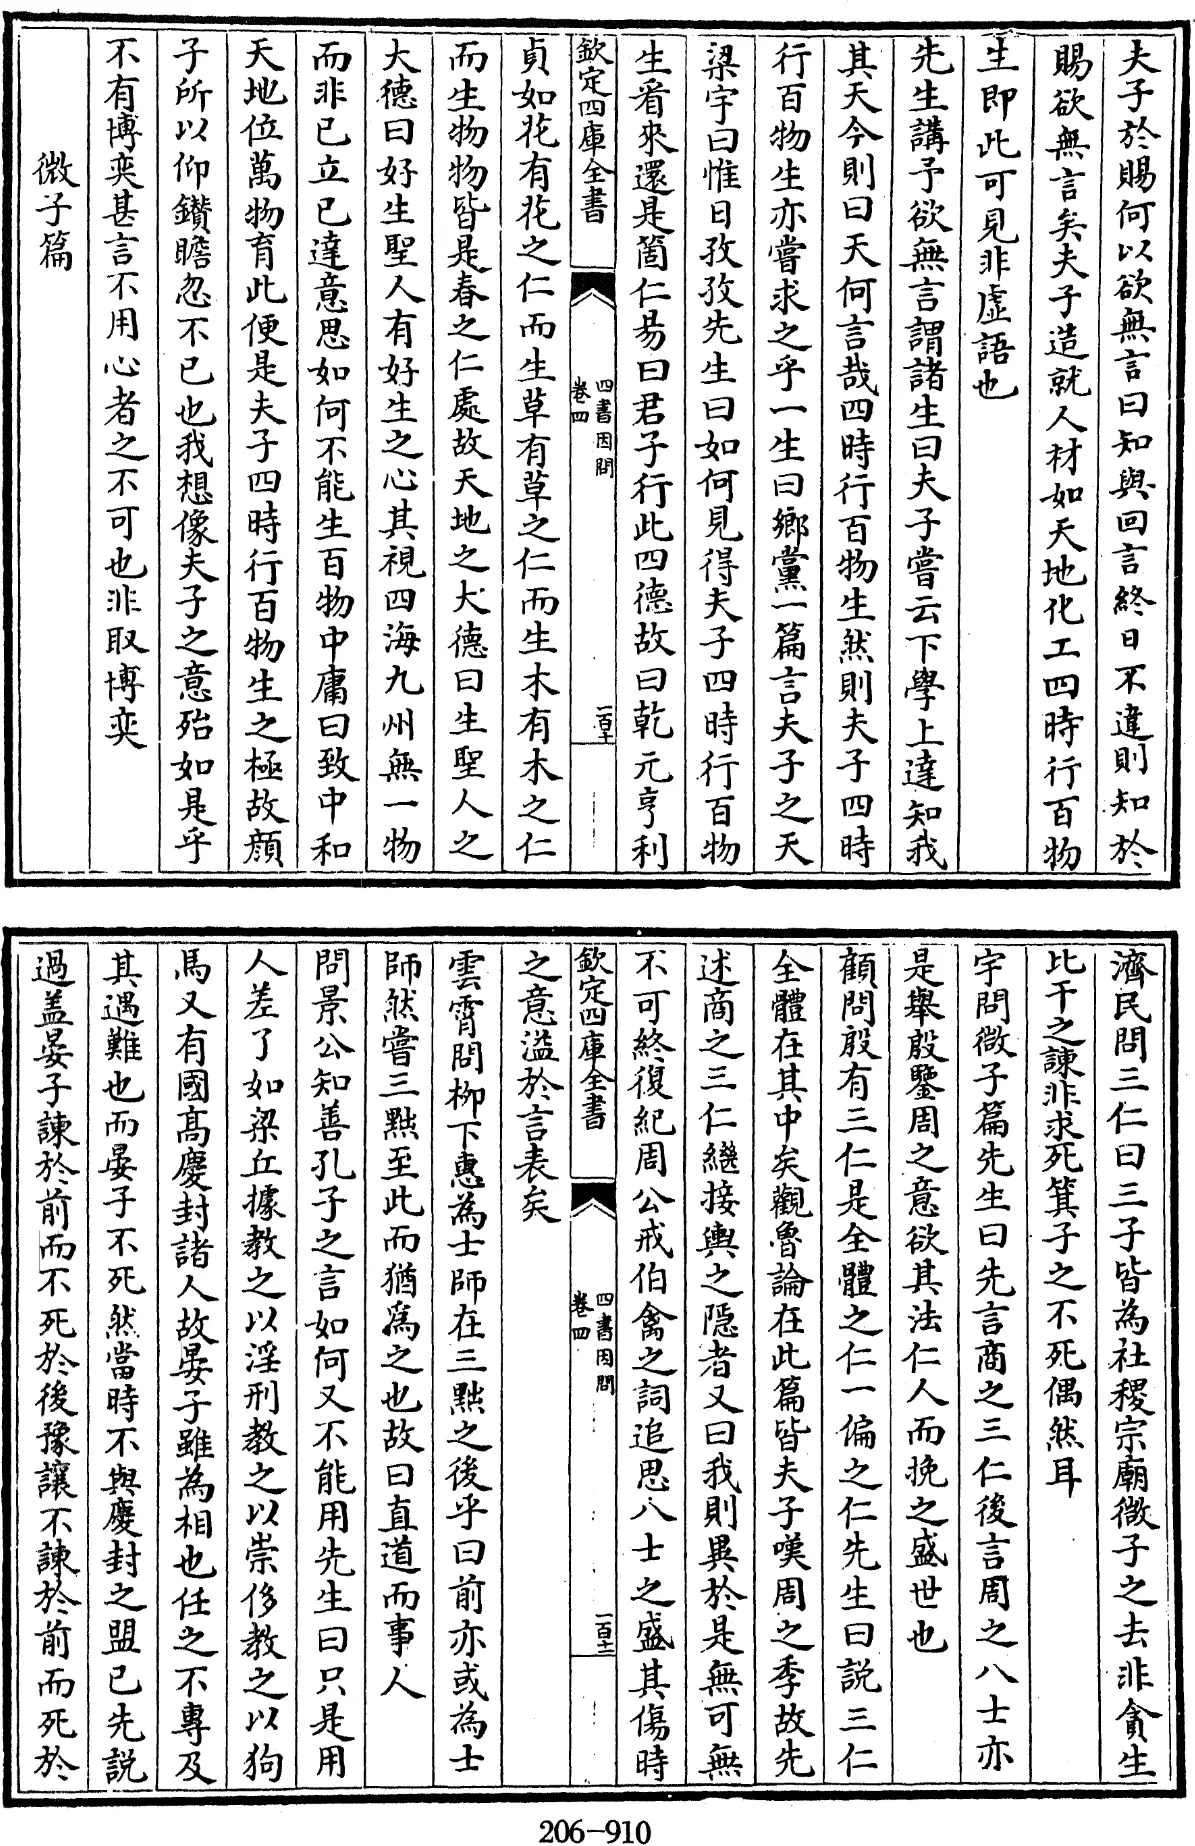 夫子於賜何以欲無言曰知與回言終日不違則知於
賜欲無言矣夫子造就人材如天地化工四時行百物
生即此可見非虛語也
先生講予欲無言謂諸生曰夫子嘗云下學上達知我
其天今則曰天何言哉四時行百物生然則夫子四時
行百物生亦嘗求之乎一生曰鄉黨一篇言夫子之天
梁宇曰惟日孜孜先生曰如何見得夫子四時行百物
生看來還是箇仁易曰君子行此四德故曰乾元亨利
欽定四庫全書
四書因問
卷四
一百十
貞如花有花之仁而生草有草之仁而生木有木之仁
而生物物皆是春之仁處故天地之大德曰生聖人之
大德曰好生聖人有好生之心其視四海九州無一物
而非已立已達意思如何不能生百物中庸曰致中和
天地位萬物育此便是夫子四時行百物生之極故顔
子所以仰鑚瞻忽不已也我想像夫子之意殆如是乎
不有博奕甚言不用心者之不可也非取博奕
微子篇
濟民問三仁曰三子皆為社稷宗廟微子之去非貪生
比干之諫非求死箕子之不死偶然耳
宇問微子篇先生曰先言商之三仁後言周之八士亦
是舉殷鑒周之意欲其法仁人而挽之盛世也
顧問殷有三仁是全體之仁一偏之仁先生曰説三仁
全體在其中矣觀魯論在此篇皆夫子嘆周之季故先
述商之三仁繼接輿之隱者又曰我則異於是無可無
不可終復紀周公戒伯禽之詞追思八士之盛其傷時
欽定四庫全書
四書因問
卷四
一百十一
之意溢於言表矣
雲霄問柳下惠為士師在三黜之後乎曰前亦或為士
師然嘗三黜至此而猶為之也故曰直道而事人
問景公知善孔子之言如何又不能用先生曰只是用
人差了如梁丘據教之以淫刑教之以崇侈教之以狗
馬又有國高慶封諸人故晏子雖為相也任之不專及
其遇難也而晏子不死然當時不與慶封之盟已先説
過盖晏子諫於前而不死於後豫讓不諫於前而死於
206-910